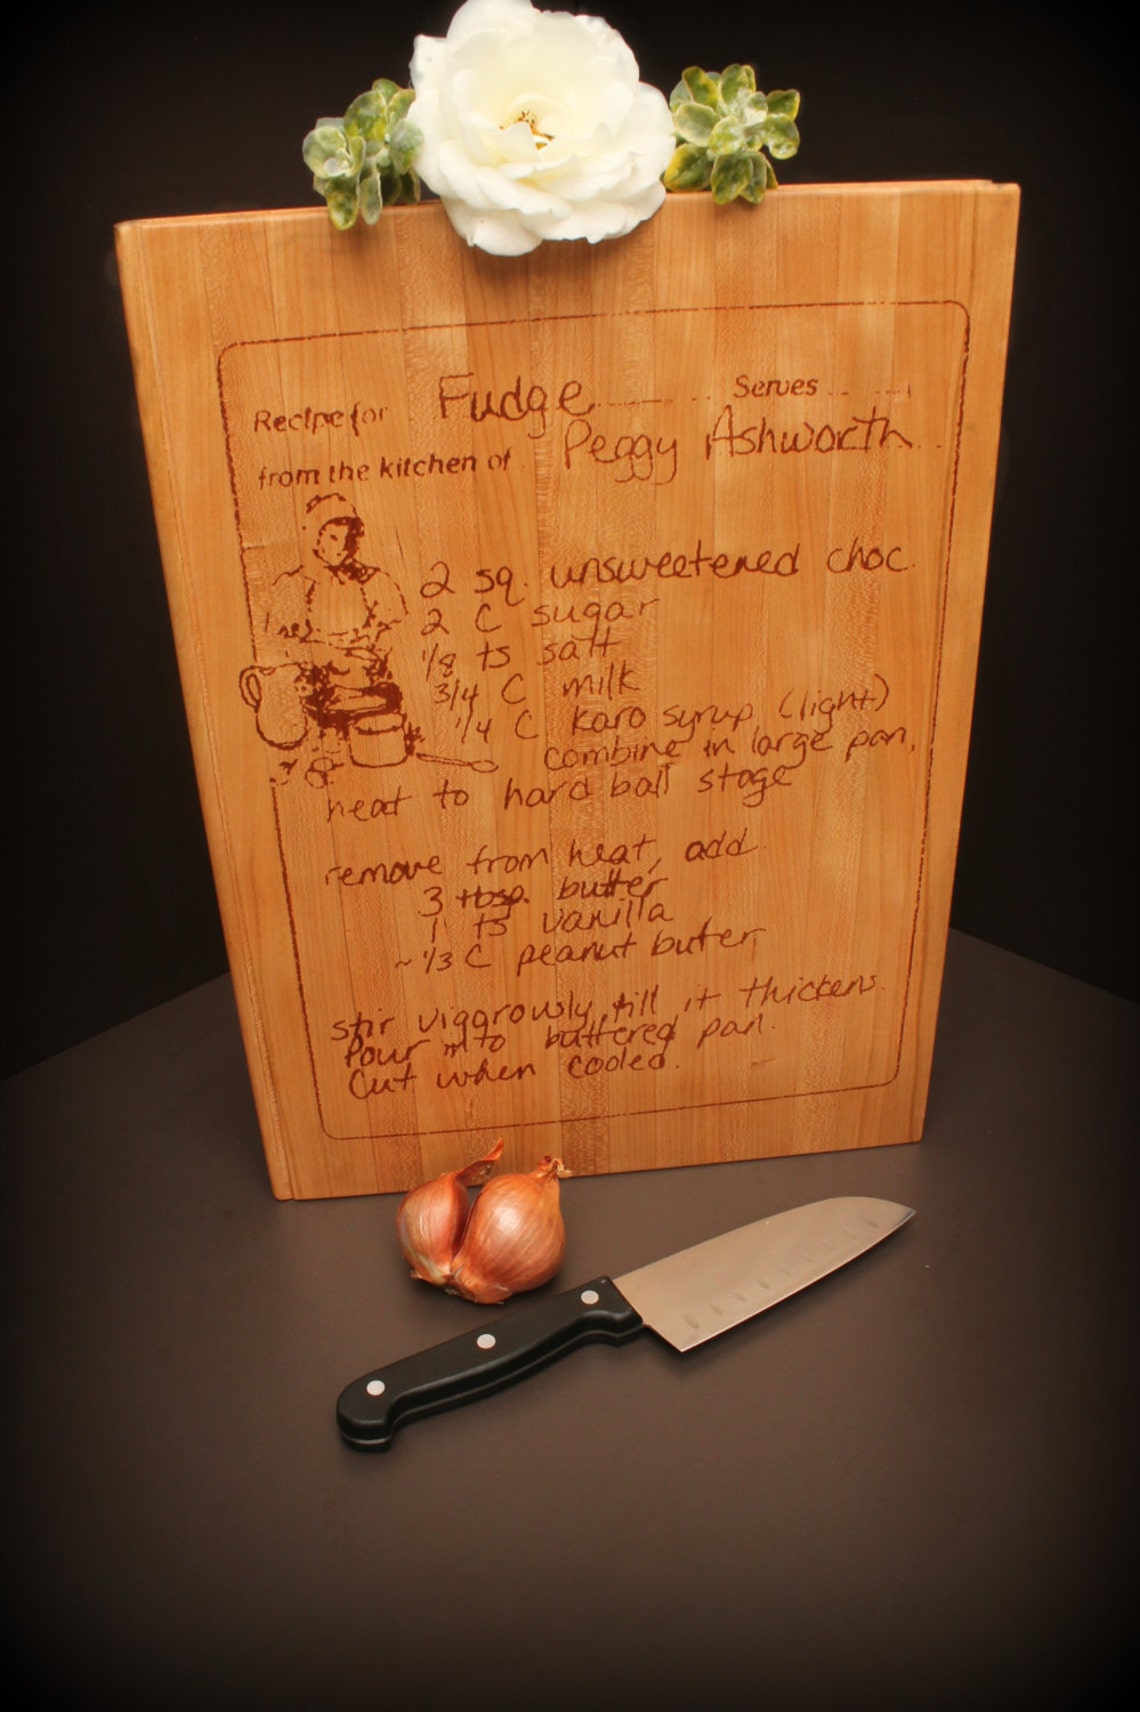 Recipe for Fudge Serves
from the kitchen of Peggy Ashworth
2 sq. unsweetened choc.
2 C sugar
1/8 ts salt
3/4 C milk
1/4 C karo syrup (light)
combine in large pan,
heat to hard ball stage
remove from heat, add
3 tbsp. butter
1 ts vanilla
~ 1/3 C peanut butter
stir viggrously till it thickens.
Pour into buttered pan.
Cut when cooled.